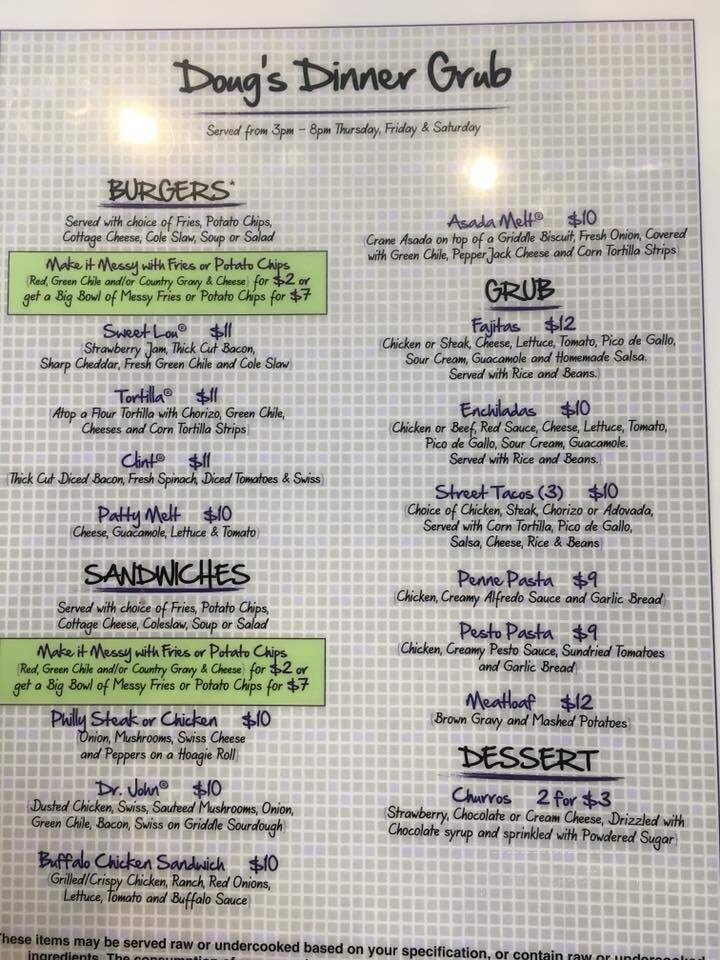 Doug's Dinner Grub
Served from 3pm - 8pm Thursday, Friday & Saturday
BURGERS*
Served with choice of Fries, Potato Chips,
Cottage Cheese, Cole Slaw, Soup or Salad
Make it Messy with Fries or Potato Chips
(Red, Green Chile and/or Country Gravy & Cheese) for $2 or
get a Big Bowl of Messy Fries or Potato Chips for $7
Sweet Lou® $11
(Strawberry Jam, Thick Cut Bacon,
Sharp Cheddar, Fresh Green Chile and Cole Slaw)
Tortilla® $11
(Atop a Flour Tortilla with Chorizo, Green Chile,
Cheeses and Corn Tortilla Strips)
Clint® $11
(Thick Cut Diced Bacon, Fresh Spinach, Diced Tomatoes & Swiss)
Patty Melt $10
(Cheese, Guacamole, Lettuce & Tomato)
SANDWICHES
Served with choice of Fries, Potato Chips,
Cottage Cheese, Coleslaw, Soup or Salad
Make it Messy with Fries or Potato Chips
(Red, Green Chile and/or Country Gravy & Cheese) for $2 or
get a Big Bowl of Messy Fries or Potato Chips for $7
Philly Steak or Chicken $10
(Onion, Mushrooms, Swiss Cheese
and Peppers on a Hoagie Roll)
Dr. John® $10
(Dusted Chicken, Swiss, Sauteed Mushrooms, Onion,
Green Chile, Bacon, Swiss on Griddle Sourdough)
Buffalo Chicken Sandwich $10
(Grilled/Crispy Chicken, Ranch, Red Onions,
Lettuce, Tomato and Buffalo Sauce)
Asada Melt® $10
(Crane Asada on top of a Griddle Biscuit, Fresh Onion, Covered
with Green Chile, Pepper Jack Cheese and Corn Tortilla Strips)
GRUB
Fajitas $12
(Chicken or Steak, Cheese, Lettuce, Tomato, Pico de Gallo,
Sour Cream, Guacamole and Homemade Salsa.
Served with Rice and Beans.)
Enchiladas $10
(Chicken or Beef, Red Sauce, Cheese, Lettuce, Tomato,
Pico de Gallo, Sour Cream, Guacamole.
Served with Rice and Beans.)
Street Tacos (3) $10
(Choice of Chicken, Steak, Chorizo or Adovada,
Served with Corn Tortilla, Pico de Gallo,
Salsa, Cheese, Rice & Beans)
Penne Pasta $9
(Chicken, Creamy Alfredo Sauce and Garlic Bread)
Pesto Pasta $9
(Chicken, Creamy Pesto Sauce, Sundried Tomatoes
and Garlic Bread)
Meatloaf $12
(Brown Gravy and Mashed Potatoes)
DESSERT
Churros 2 for $3
(Strawberry, Chocolate or Cream Cheese, Drizzled with
Chocolate syrup and sprinkled with Powdered Sugar)
These items may be served raw or undercooked based on your specification, or contain raw or undercooked
ingredients. The